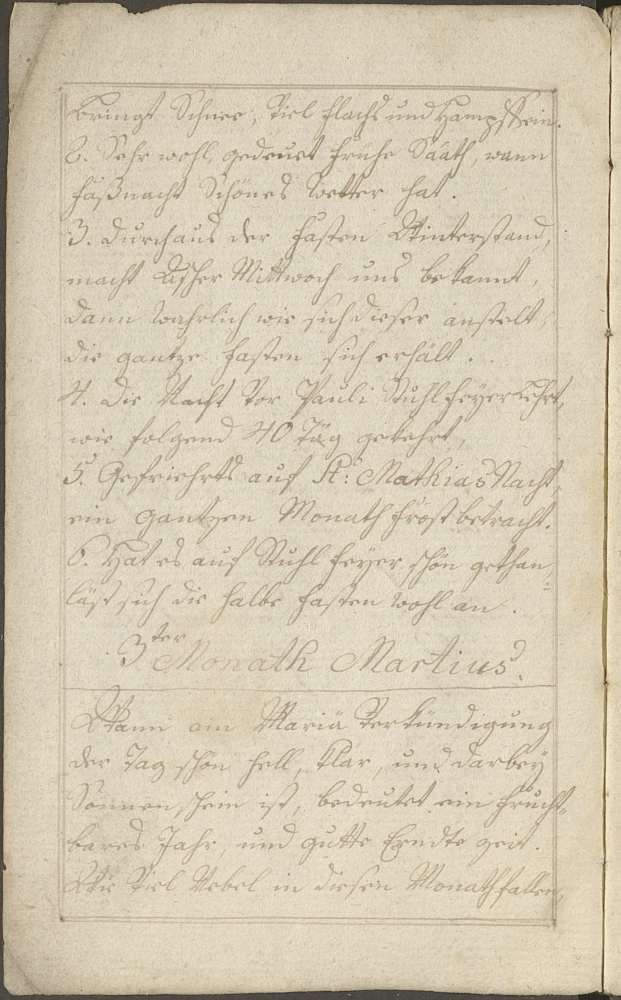 bringt Schnee, Viel Flachs und Hampf sein.
2. Sehr wohl, gedeuet frühe Sääth, wann
faßnacht Schönes Wetter hat.
3. Durchaus der fasten Winterstand,
macht Ascher Mittwoch uns bekannt,
dann wahrlich wie sich dieser anstelt,
die gantze fasten sich erhält.
4. Die Nacht Vor Pauli Stuhlfeyer lehrt,
wie folgend 40 Täg gekehrt,
5. Gefriehrts auf St: Mathias Nacht,
ein gantzen Monath frost betracht.
6. Hat es auf Stuhl feyer schön gethan,
läst sich die halbe fasten wohl an.
3ter Monath Martius.
Wann am Mariä Verkündigung
der Tag schön hell, klar, und darbey
Sonnenschein ist, bedeutet ein frucht-
bares Jahr, und gutte Erndte zeit.
Wie Viel Nebel in diesen Monath fallen,